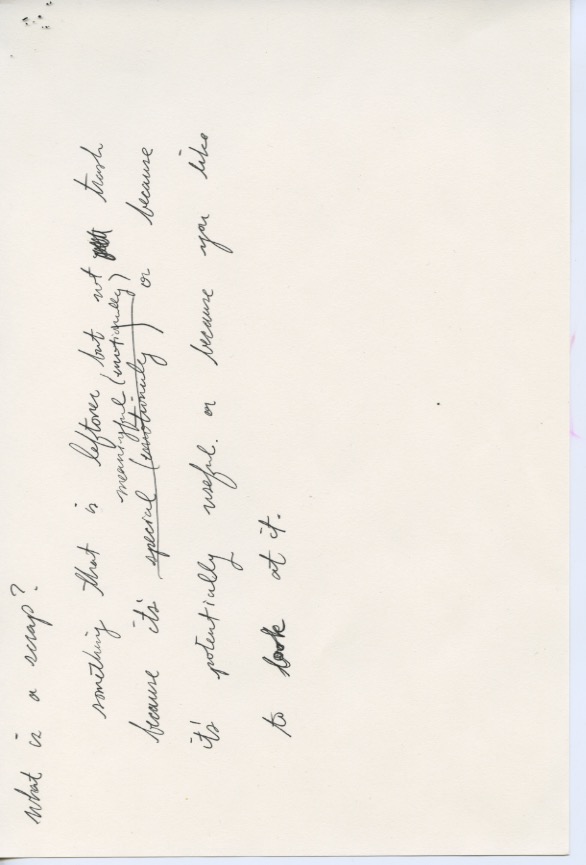 What is a scrap?
something that is leftover but not trash
meaningful (emotionally)
because it's special (emotionally) or because
it's potentially useful. or because you like
to look at it.